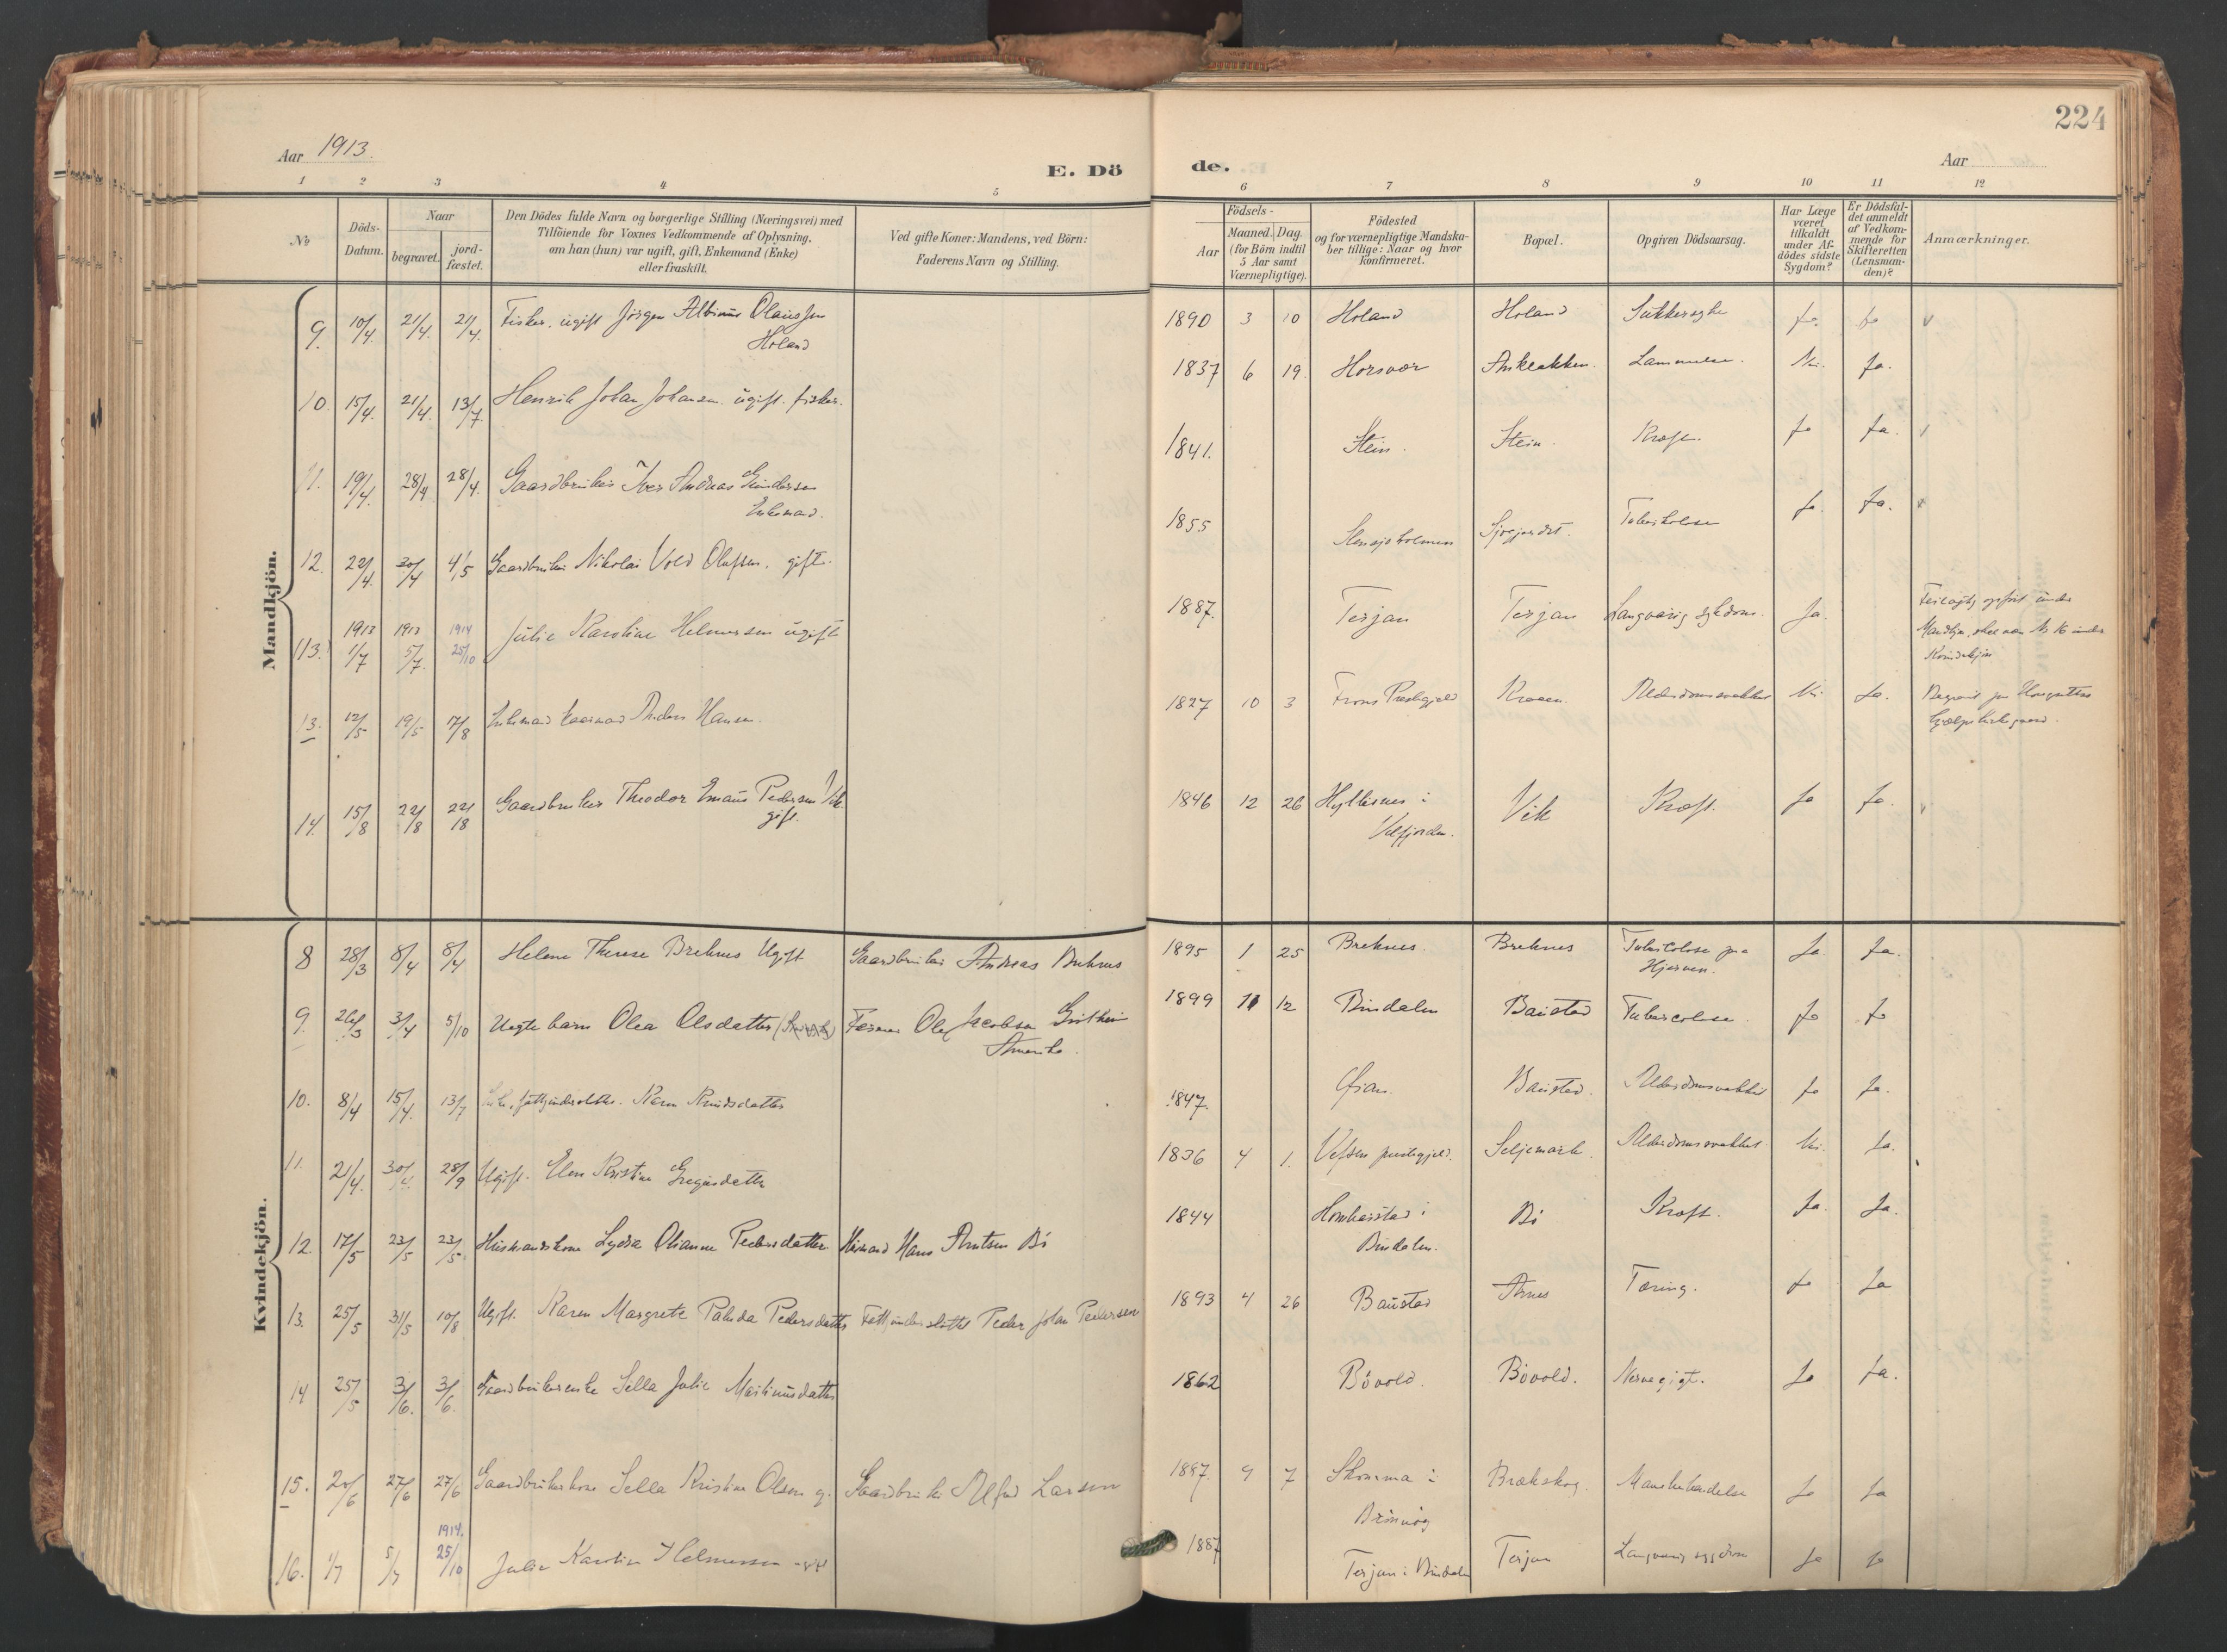 224
Aar 1913.
E. Dö
de.
Aar
1
2
3
4
5
6
7
8
9
10
11
12
No
Döds-
Datum.
Naar
begravet.
jord-
fæstet.
Den Dödes fulde Navn og borgerlige Stilling (Næringsvei) med
Tilföiende for Voxnes Vedkommende af Oplysning,
om han (hun) var ugift, gift, Enkemand (Enke)
eller fraskilt.
Ved gifte Koner: Mandens, ved Börn:
Faderens Navn og Stilling.
Födsels-
Aar
Maaned. Dag.
(for Börn indtil
5 Aar samt
Værnepligtige).
Födested
og for værnepligtige Mandska-
ber tillige: Naar og hvor
konfirmeret.
Bopæl.
Opgiven Dödsaarsag.
Har Læge
været
tilkaldt
under Af-
dödes sidste
Sygdom?
Er Dödsfal-
det anmeldt
af Vedkom-
mende for
Skifteretten
(Lensman-
den)?
Anmærkninger.
Mandkjön.
9. 10/4 21/4 21/4 Fisker, ugift Jörgen Albinus Olaussen 1890 3 10 Holand Holand Sukkersyke Ja. Ja
Holand
10. 15/4 21/4 13/7 Henrik Johan Johansen ugift. fisker. 1837 6 19. Horsvær Lammelse. Nei. Ja.
11. 19/4 28/4 28/4 Gaardbruker Iver Andreas 1841. Stein. Stein. Kræft. Ja Ja.
Enkemand.
12. 22/4 30/4 4/5 Gaardbruker Nikolai Vold Olufsen. gift. 1855 Tuberkolose Ja. Ja.
13. 1913 1/7 1913 5/7 1914 25/10 Julie Karoline Helmersen ugift 1887. Terjan Terjan Langvarig sykdom. Ja. Feilagtig opfört under
Mandkjön, skal være No 16 under
Kvindekjön
13. 12/5 19/5 17/8 Enkemand Anders Hansen. 1827 10 3 Præstegjeld Alderdomssvakhet Nei Ja.
14. 15/8 22/8 22/8 Gaardbruker Theodor Emaus Pedersen Vik 1846 12 26 i Vik Kræft. Ja Ja.
gift. Velfjorden.
Kvindekjön.
8 28/3 8/4 8/4 Helene Therese Breknes Ugift Gaardbruker Andreas Breknes 1895 1 25 Breknes. Breknes Tuberkolose paa Ja. Ja.
Hjernen.
9. 26/3 3/4 5/10 Uegte barn Olea Olsdatter Farmer Ole Jacobsen 1899 11 12 Bindalen Baustad Tuberculose. Ja Ja
Amerika.
10. 8/4 15/4 13/7 Karen 1847. Baustad. Alderdomssvakhet Ja Ja.
11. 21/4. 30/4. 28/9 Ugift. Elen Kristine Gregusdatter 1836 4 1. Vefsen prestegjeld. Seljemark. Alderdomssvakhet Nei. Ja.
12. 17/5 23/5 23/5 Husmandskone Lydia Olianne Pedersdatter Husmand Hans Arntsen Bö 1844 i Bö Kræft. Ja. Ja.
Bindalen.
13. 25/5 31/5 10/8 Ugift. Karen Margrete Palida Pedersdatter Fattigunderstöttet Peder Johan Pedersen 1893 4 26 Baustad Tæring. Ja Ja
14 25/5 3/6. 3/6. Gaardbrukerenke Sella Julie Martinusdatter 1862 Bövold. Bövold. Nervegigt. Ja Ja.
15. 20/6 27/6 27/6 Gaardbrukerkone Sella Kristine Olsen g. Gaardbruker Alfred Larsen 1887. 9 7 i Brækskog. Ja Ja
Brönnöy
16. 1/7 5/7 1914. 25/10 Julie Karoline Helmersen ugift 1887 Terjan i Bindalen Terjan Langvarig sygdom Ja Ja